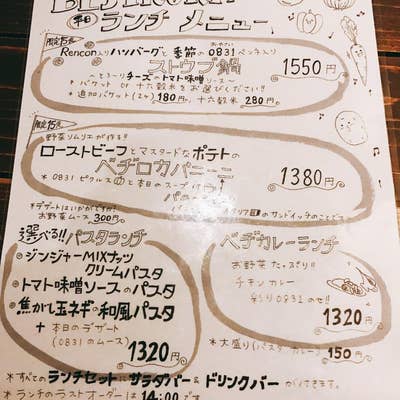 平日 ランチ メニュー
限定15食
Rencon入りハンバーグと季節の0831ペッチ入り
ストウブ鍋 1550円
〜とろ〜りチーズのトマト味噌ソース〜
* バケット or 十六穀米をお選びください!!
* 追加バケット(2ヶ)180円、十六穀米280円。
限定15食
野菜ソムリエが作る!!
ローストビーフとマスタードなポテトの
ベヂロカパニーニ 1380円
* 0831ピクルスゆと本日のスープ
サンドイッチのことです
*デザートはいかがですか?
お野菜ムース300円。
選べる!! パスタランチ
・ジンジャーMIXナッツ
クリームパスタ
・トマト味噌ソースのパスタ
・焦がし玉ネギの和風パスタ
+ 本日のデザート
(0831のムース)
1320円
ベヂカレーランチ
お野菜たっぷり!!
チキンカレー
彩り0831のせ!!
1320円
*大盛り(パスタ カレー)150円
*すべてのランチセットにサラダバー&ドリンクバーが付きます。
*ランチのラストオーダーは14:00です